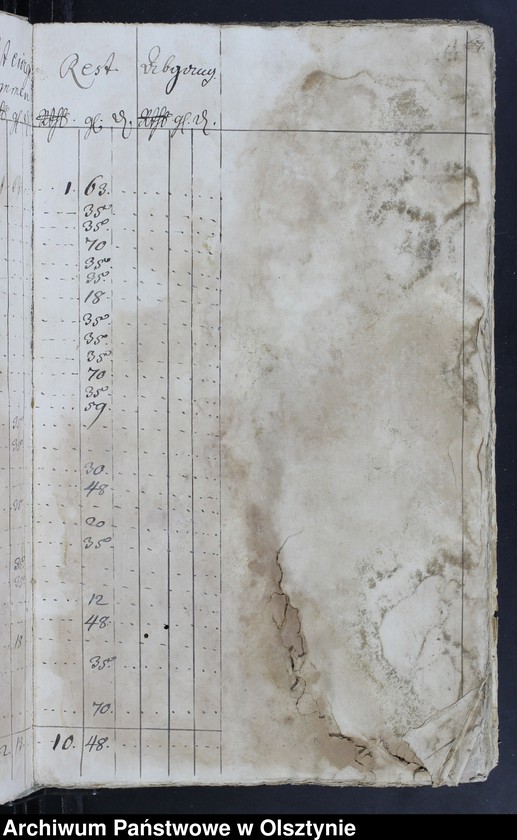 Rest Abgang
Rthl. gl. d. Rthl. gl. d.
1. 63.
35.
35.
70
35.
35.
18.
35.
35.
35.
70
35.
59.
30
48
20
35.
12
48.
35.
70.
10. 48.
Archiwum Państwowe w Olsztynie